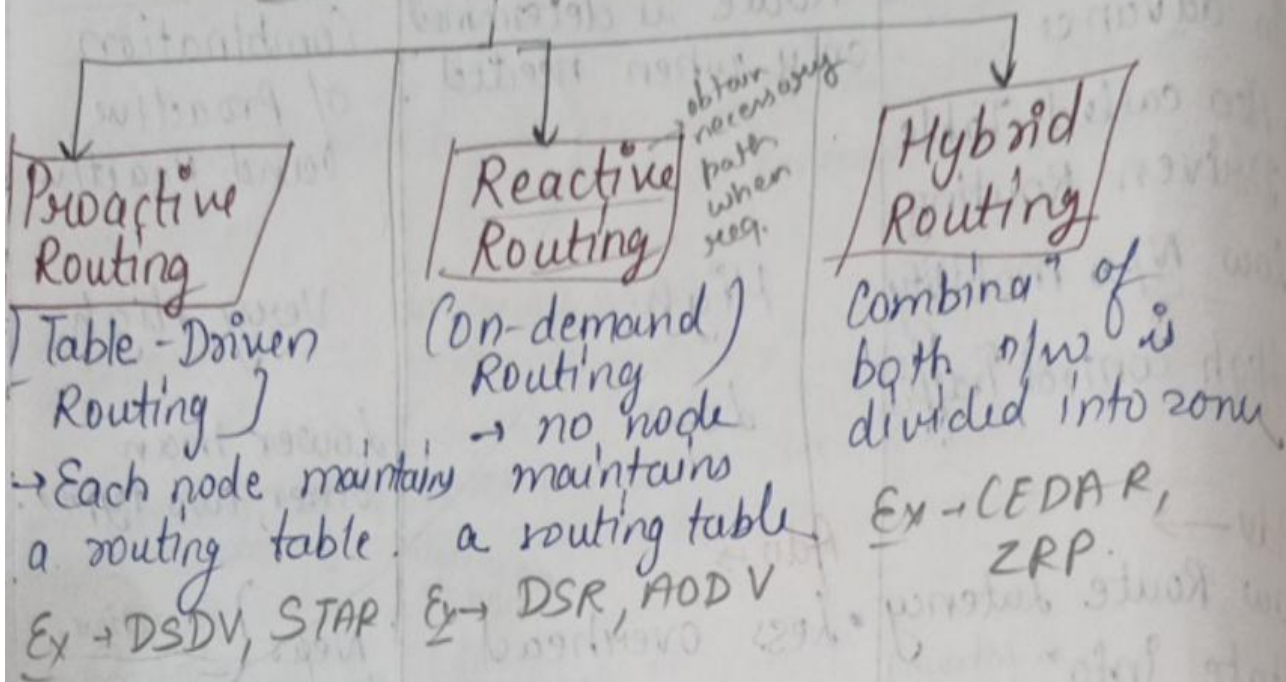 Proactive
Routing
[Table-Driven
Routing]
→ Each node maintains
a routing table.
Ex → DSDV, STAR
Reactive
Routing
→ obtain
necessary
path
when
req.
(on-demand)
Routing
→ no node
maintains
a routing table
Ex → DSR, AODV
Hybrid
Routing
Combinaⁿ of
both n/w is
divided into zone
Ex → CEDAR,
ZRP.